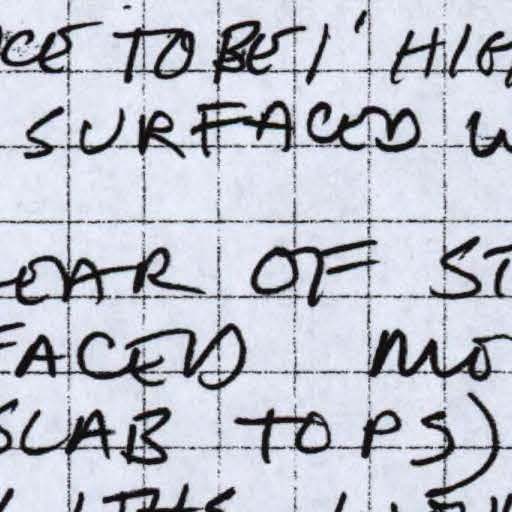 CE TO BE 1' HIG
SURFACED W
EAR OF ST
FACED MO
SLAB TOPS)